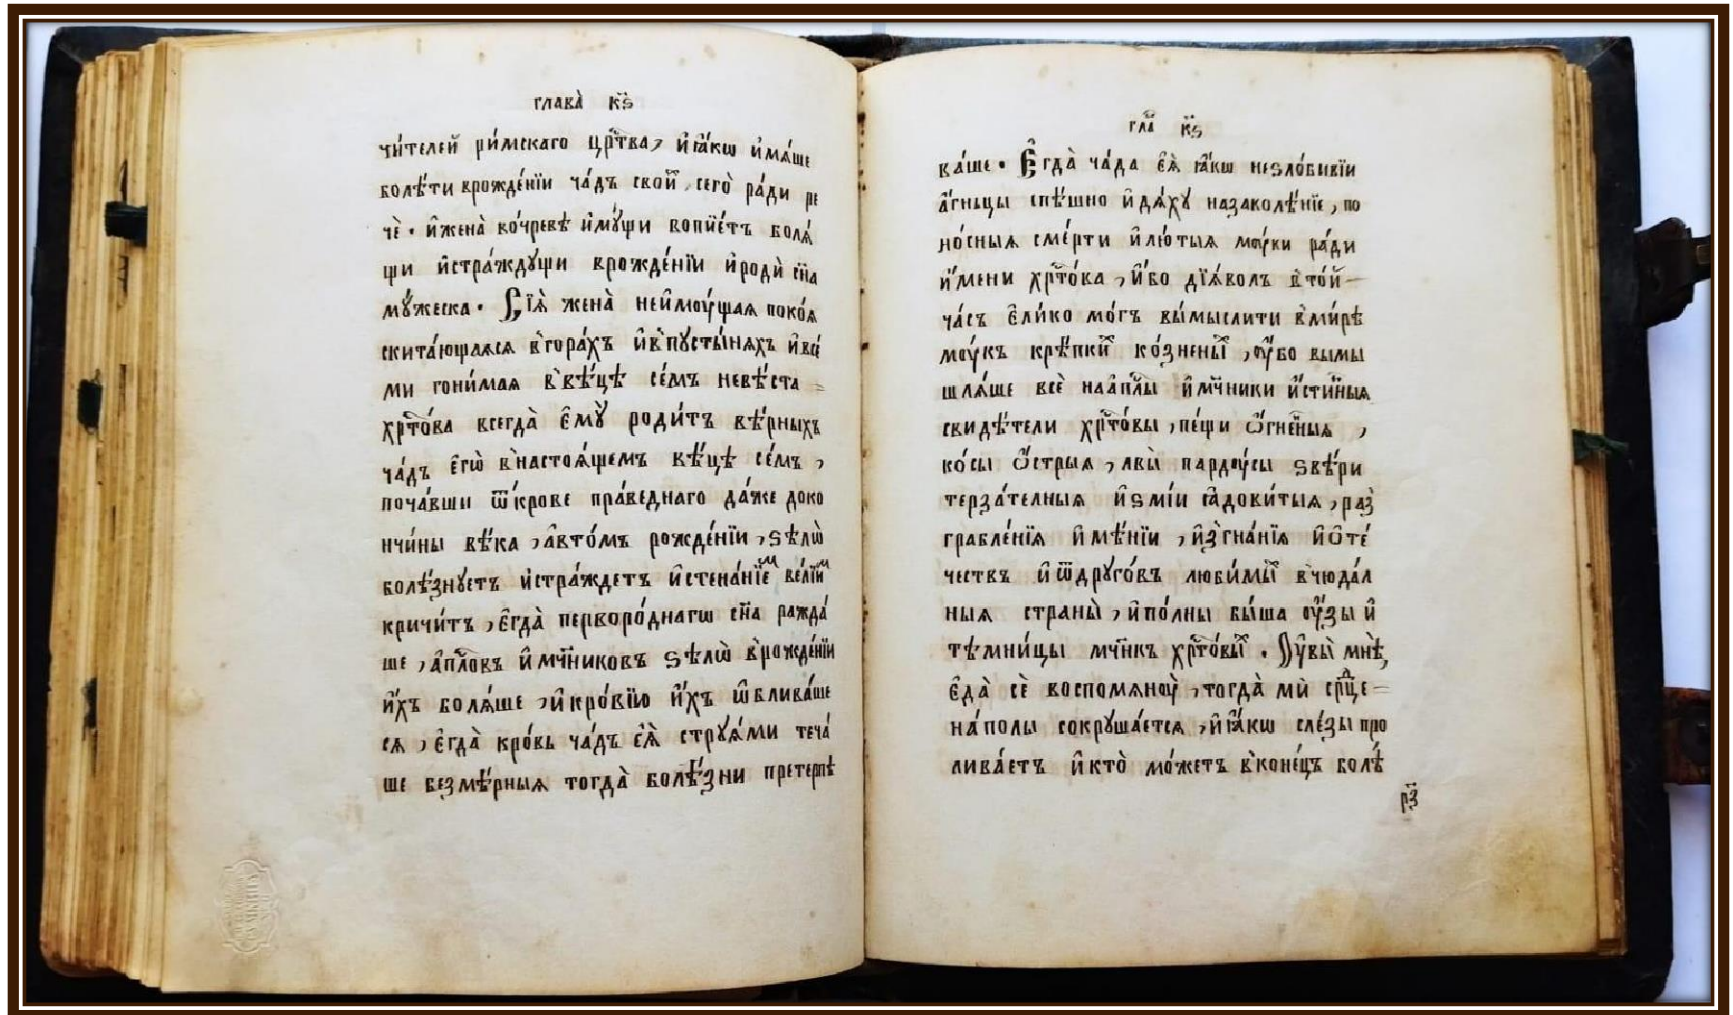 глава̀ к҃ѕ
чи́телей ри́мскаго црⷭ҇тва, и҆ꙗ҆́кѡ и҆мѧ́ше
болѣ́ти врожде́нїи ча́дъ свои́хъ, сего̀ ра́ди ре
чѐ. и҆жена̀ во́чревѣ и҆мꙋ́щи вопїе́тъ болѧ́
щи и҆стра́ждꙋщи врожде́нїи и҆родѝ сн҃а
мꙋ́жеска. Сїѧ̀ жена̀ неи҆моу́щая поко́ѧ
скита́ющаяся в̾гора́хъ и҆в̾пꙋсты́няхъ и҆всѣ́
ми гони́мая в̾вѣ́цѣ се́мъ невѣ́ста
хрⷭ҇то́ва всегда̀ є҆мꙋ̀ роди́тъ вѣ́рныхъ
ча́дъ є҆гѡ̀ в̾настоѧ́щемъ вѣ́цѣ се́мъ,
поча́вши ѿкро́ве пра́веднаго да́же доко
нчи́ны вѣ́ка, а҆вто́мъ рожде́нїи, ѕѣлѡ̀
болѣ́знꙋетъ и҆стра́ждетъ и҆стена́нїеⷨ ве́лїиⷨ
кричи́тъ, є҆гда̀ перворо́днагѡ сн҃а ражда́
ше, а҆пⷭ҇ловъ и҆мч҃никовъ ѕѣлѡ̀ в̾рожде́нїи
и҆́хъ болѧ́ше, и҆кро́вїю и҆́хъ ѡ҆блива́ше
ся, є҆гда̀ кро́вь ча́дъ є҆ѧ̀ стрꙋѧ́ми теча́
ше безмѣ́рныя тогда̀ болѣ́зни претерпѣ
глⷡ҇а̀ к҃ѕ
ва́ше. Є҆гда̀ ча́да є҆ѧ̀ ꙗ҆́кѡ неѕло́бивїи
а҆́гньцы спѣ́шно и҆дѧ́хꙋназаколѣ́нїе, по
но́сныя сме́рти и҆лю́тыя моу́ки ра́ди
и҆́мени хрⷭ҇то́ва, и҆́бо дїѧ́волъ в̾то́й
ча́съ є҆ли́ко мо́гъ вы́мыслити в̾ми́рѣ
моу́къ крѣ́пкиⷯ ко́зненыⷯ, оу҆́бо вымы
шлѧ́ше всѐ наа҆пⷭ҇лы и҆мч҃ники и҆́стиⷩ҇ныя
свидѣ́тели хрⷭ҇то́вы, пе́щи ѻ҆́гнеⷩ҇ныя,
ко́сы ѻ҆́стрыя, львѝ пардоу́сы ѕвѣ́ри
терза́телныя и҆ѕмі́и ꙗ҆дови́тыя, раз̾
грабле́нїя и҆мѣ́нїи, и҆з̾гна́нїя и҆ѻ҆те́
чествъ и҆ѿдрꙋго́въ люби́мыⷯ в̾чюда́л
ныя страны̀, и҆по́лны бы́ша оу҆́зы и҆
тѣмни́цы мч҃нкъ хрⷭ҇то́выⷯ. Оу҆вы̀ мнѣ̀,
є҆да̀ сѐ воспомяноу̀, тогда̀ мѝ срⷣ҇це
на́полы сокрꙋша́ется, и҆ꙗ҆́кѡ сле́зы про
лива́етъ и҆кто̀ мо́жетъ в̾коне́цъ болѣ́
р҃з